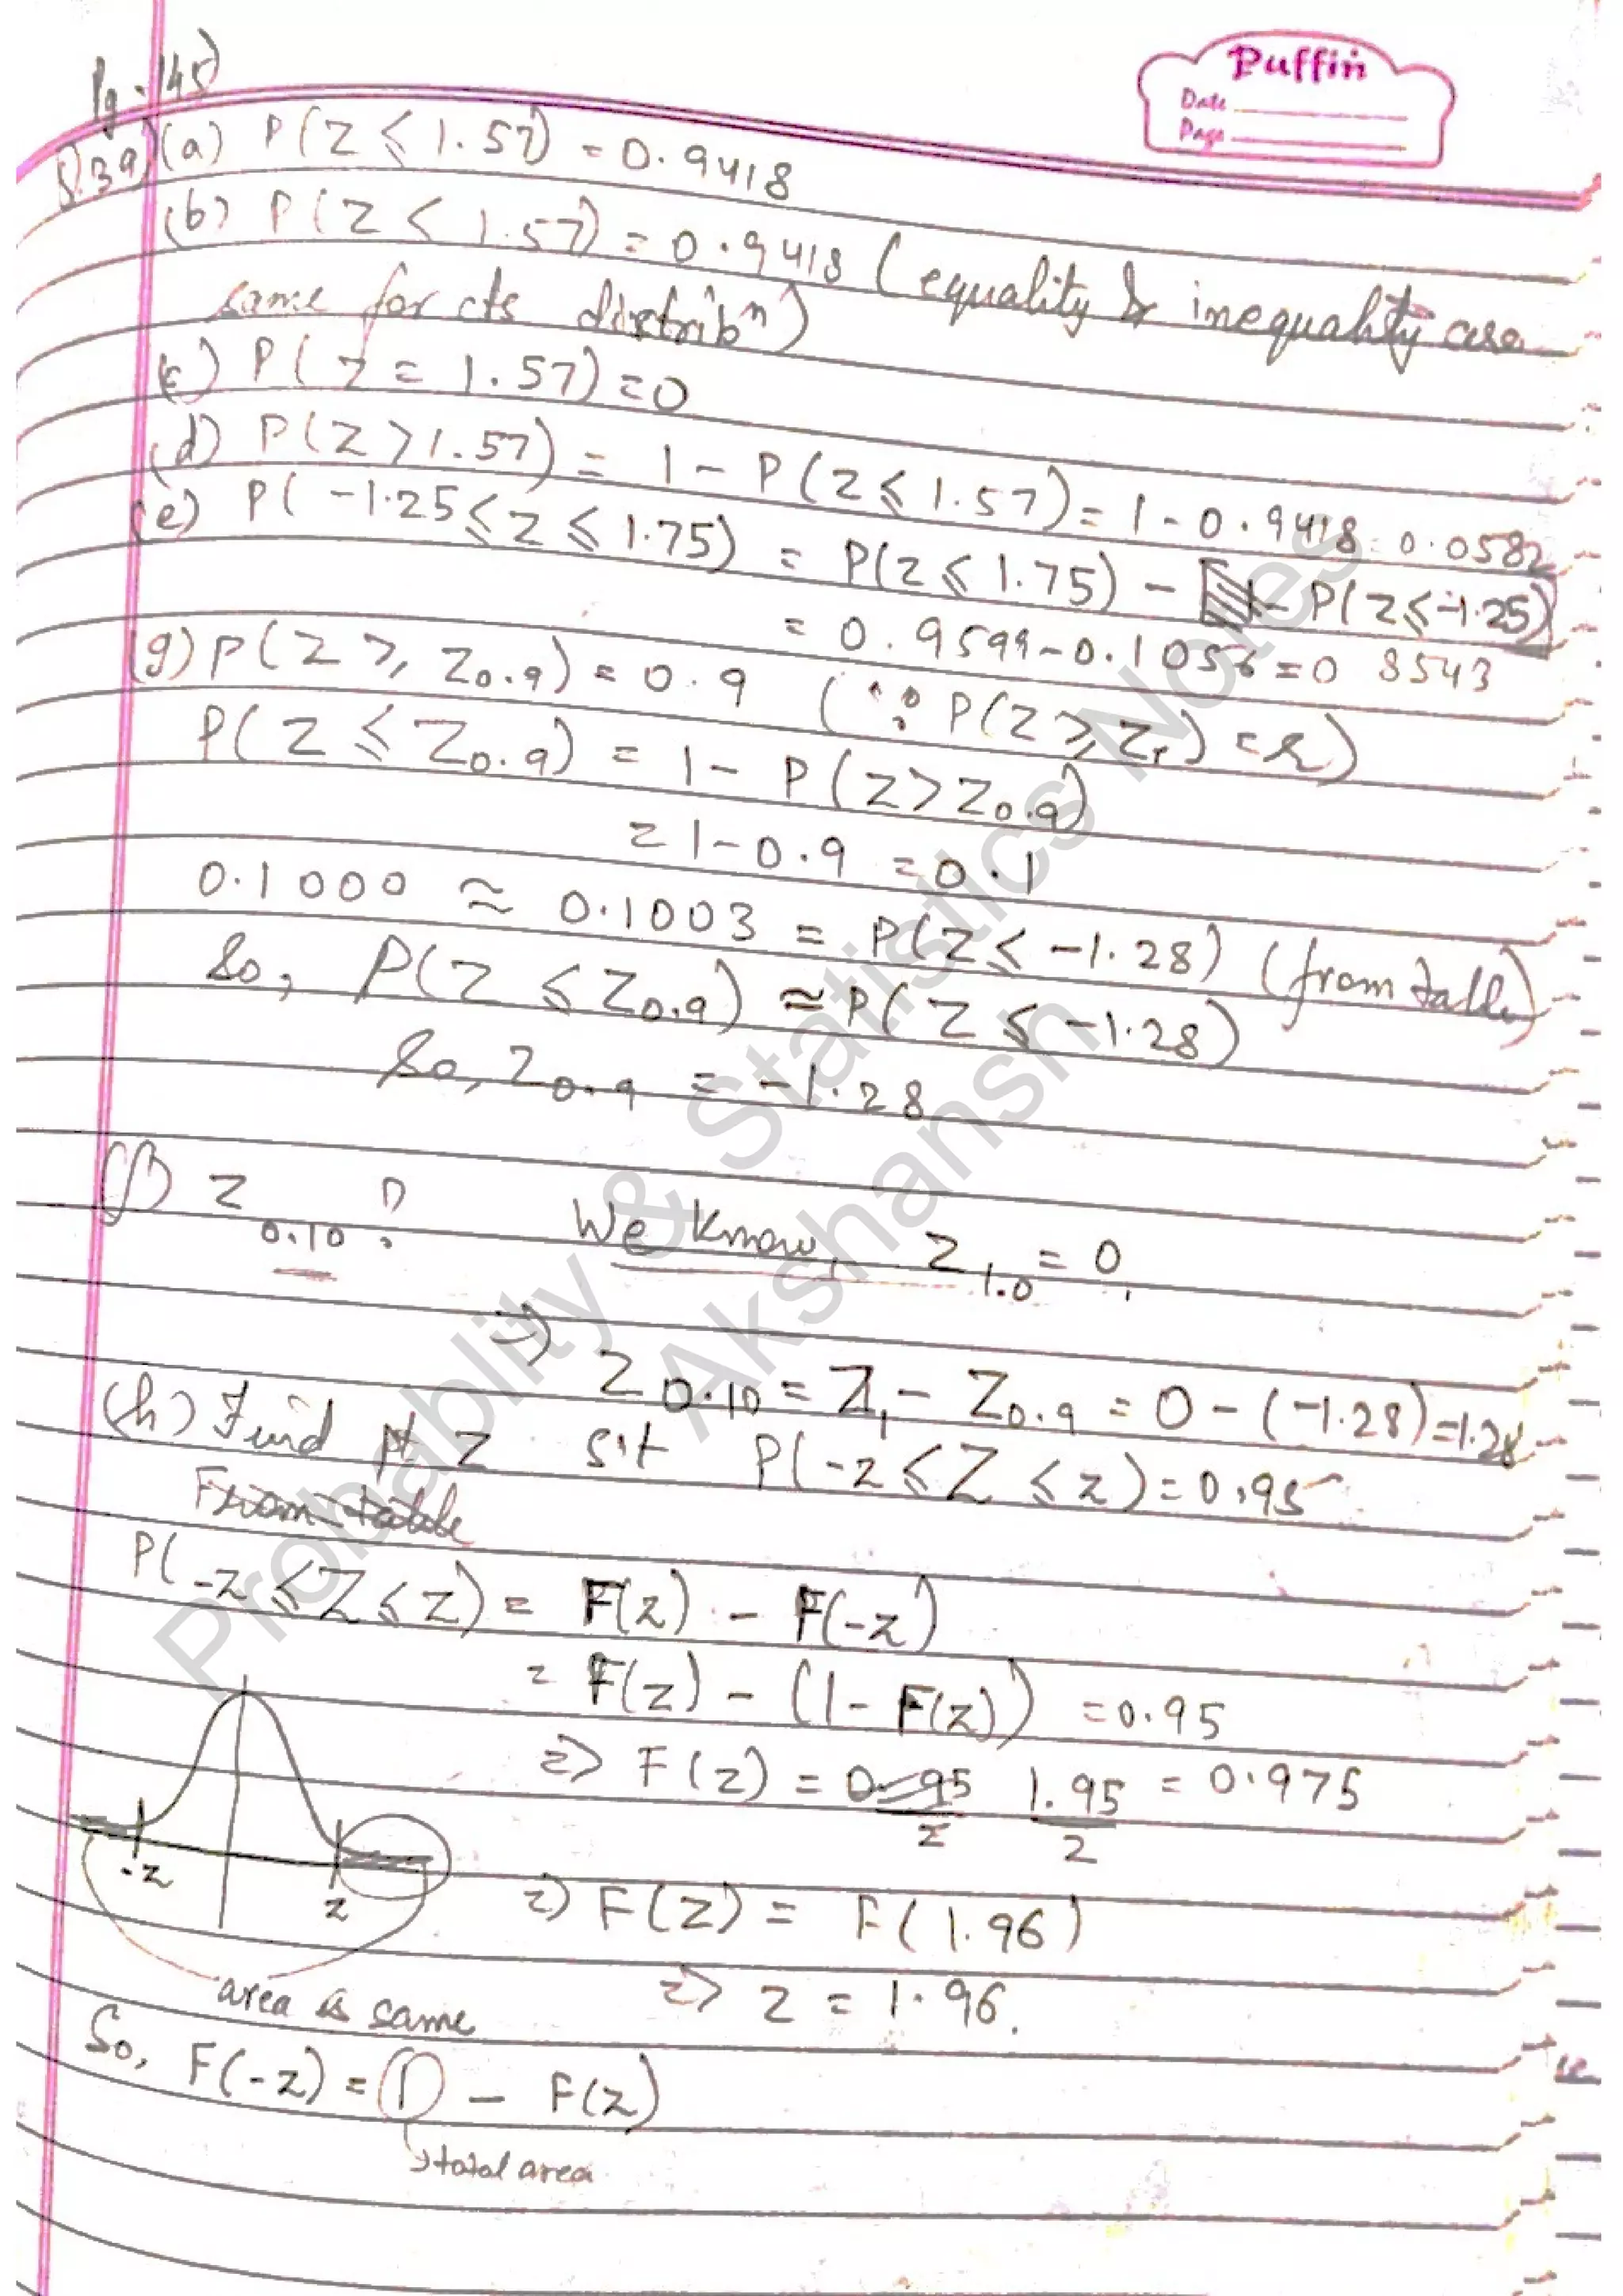 Puffin
Date
Page
Pg-145)
(a) P(Z ≤ 1.57) = 0.9418
(b) P(Z < 1.57) = 0.9418 (equality & inequality case
same for cts distribⁿ)
(c) P(Z = 1.57) = 0
(d) P(Z > 1.57) = 1 - P(Z ≤ 1.57) = 1 - 0.9418 = 0.0582
(e) P(-1.25 ≤ Z ≤ 1.75) = P(Z ≤ 1.75) - P(Z ≤ -1.25)
= 0.9599 - 0.1056 = 0.8543
(g) P(Z ≥ Z0.9) = 0.9 (∵ P(Z ≥ Zr) = r)
P(Z ≤ Z0.9) = 1 - P(Z > Z0.9)
= 1 - 0.9 = 0.1
0.1000 ≈ 0.1003 = P(Z ≤ -1.28) (from table)
So, P(Z ≤ Z0.9) ≈ P(Z ≤ -1.28)
So, Z0.9 = -1.28
(f) Z0.10 ? We know, Z1.0 = 0.
→ Z0.10 = Z1 - Z0.9 = 0 - (-1.28) = 1.28
(h) Find z s.t P(-z ≤ Z ≤ z) = 0.95
From table
P(-z ≤ Z ≤ z) = F(z) - F(-z)
= F(z) - (1 - F(z)) = 0.95
⇒ F(z) = 0.95/2 1.95/2 = 0.975
-z z
⇒ F(z) = F(1.96)
⇒ z = 1.96.
area is same
So, F(-z) = 1 - F(z)
→ total area
Probablity & Statistics Notes
Akshansh